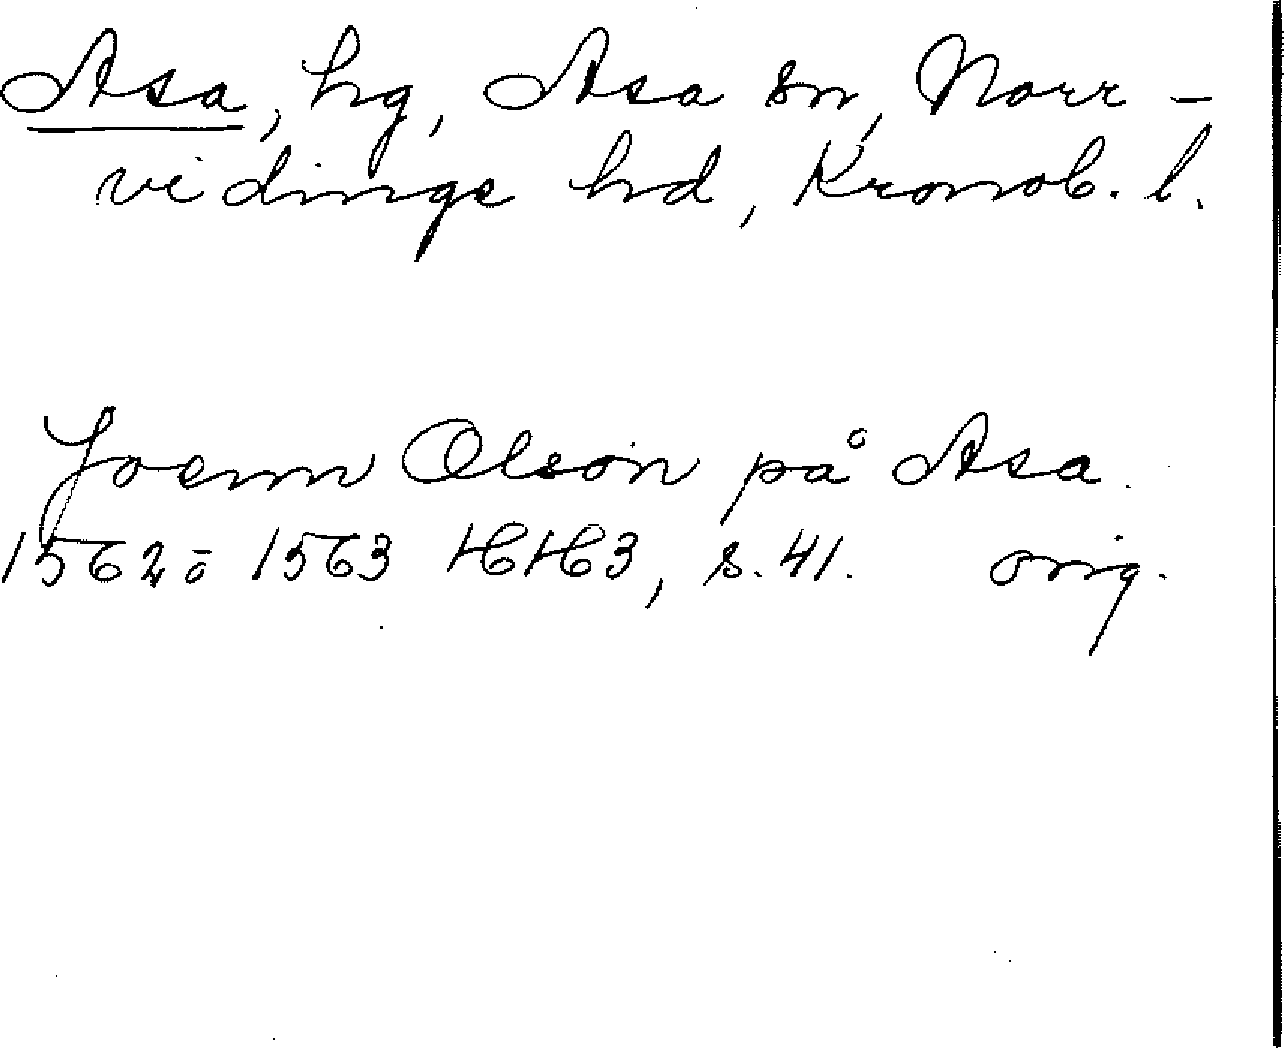 Asa, hg, Asa sn, Norr-
vidinge hd, Kronob. l.
Joenn Olson på Asa.
1562 o 1563 HH3, s. 41. orig.